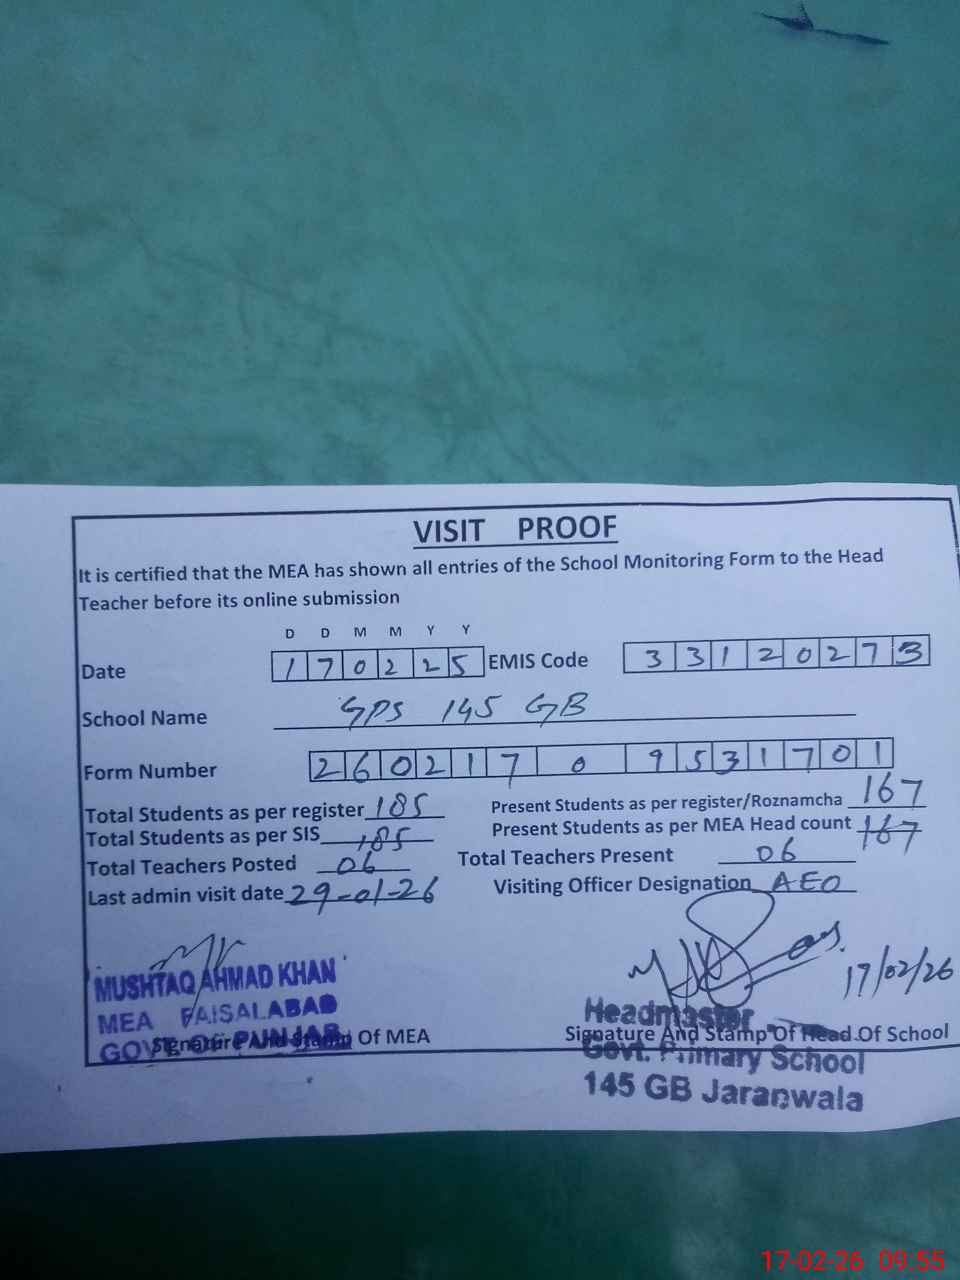 VISIT PROOF
It is certified that the MEA has shown all entries of the School Monitoring Form to the Head
Teacher before its online submission
D D M M Y Y
Date 1 7 0 2 2 5 EMIS Code 3 3 1 2 0 2 7 3
School Name GPS 145 GB
Form Number 2 6 0 2 1 7 0 9 5 3 1 7 0 1
Total Students as per register 185 Present Students as per register/Roznamcha 167
Total Students as per SIS 185 Present Students as per MEA Head count 167
Total Teachers Posted 06 Total Teachers Present 06
Last admin visit date 29-01-26 Visiting Officer Designation AEO
17/02/26
MUSHTAQ AHMAD KHAN
MEA FAISALABAD
GOVT OF PUNJAB
Signature And Stamp Of MEA
Headmaster
Signature And Stamp Of Head Of School
Govt. Primary School
145 GB Jaranwala
17-02-26 09:55